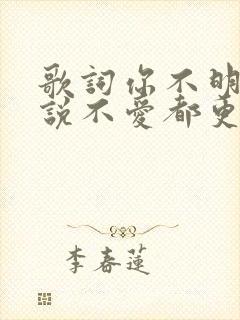 歌詞你不明
說不愛都更
李春蓮